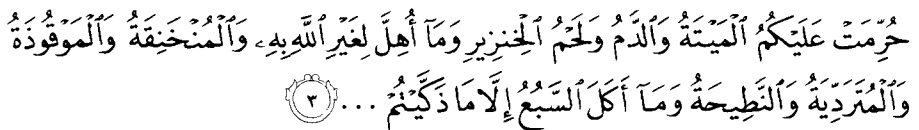 حُرِّمَتْ عَلَيْكُمُ الْمَيْتَةُ وَالدَّمُ وَلَحْمُ الْخِنزِيرِ وَمَآ أُهِلَّ لِغَيْرِ اللَّهِ بِهِۦ وَالْمُنْخَنِقَةُ وَالْمَوْقُوذَةُ
وَالْمُتَرَدِّيَةُ وَالنَّطِيحَةُ وَمَآ أَكَلَ السَّبُعُ إِلَّا مَا ذَكَّيْتُمْ ... ٣